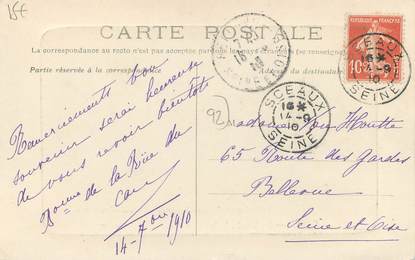 15€
CARTE POSTALE
La correspondance au recto n'est pas acceptée par tous les pays étrangers (se renseigner
Partie réservée à la correspondance
Adresse du destinataire
RÉPUBLIQUE FRANÇAISE
10
SCEAUX
16 *
14-9
10
SEINE
SCEAUX
16 *
14-9
10
SEINE
92
Remerciements bon
souvenir serai heureuse
de vous revoir bientôt
Bonne de la
14-7bre 1910
Madame Van Houtte
65 Route des Gardes
Bellevue
Seine et Oise